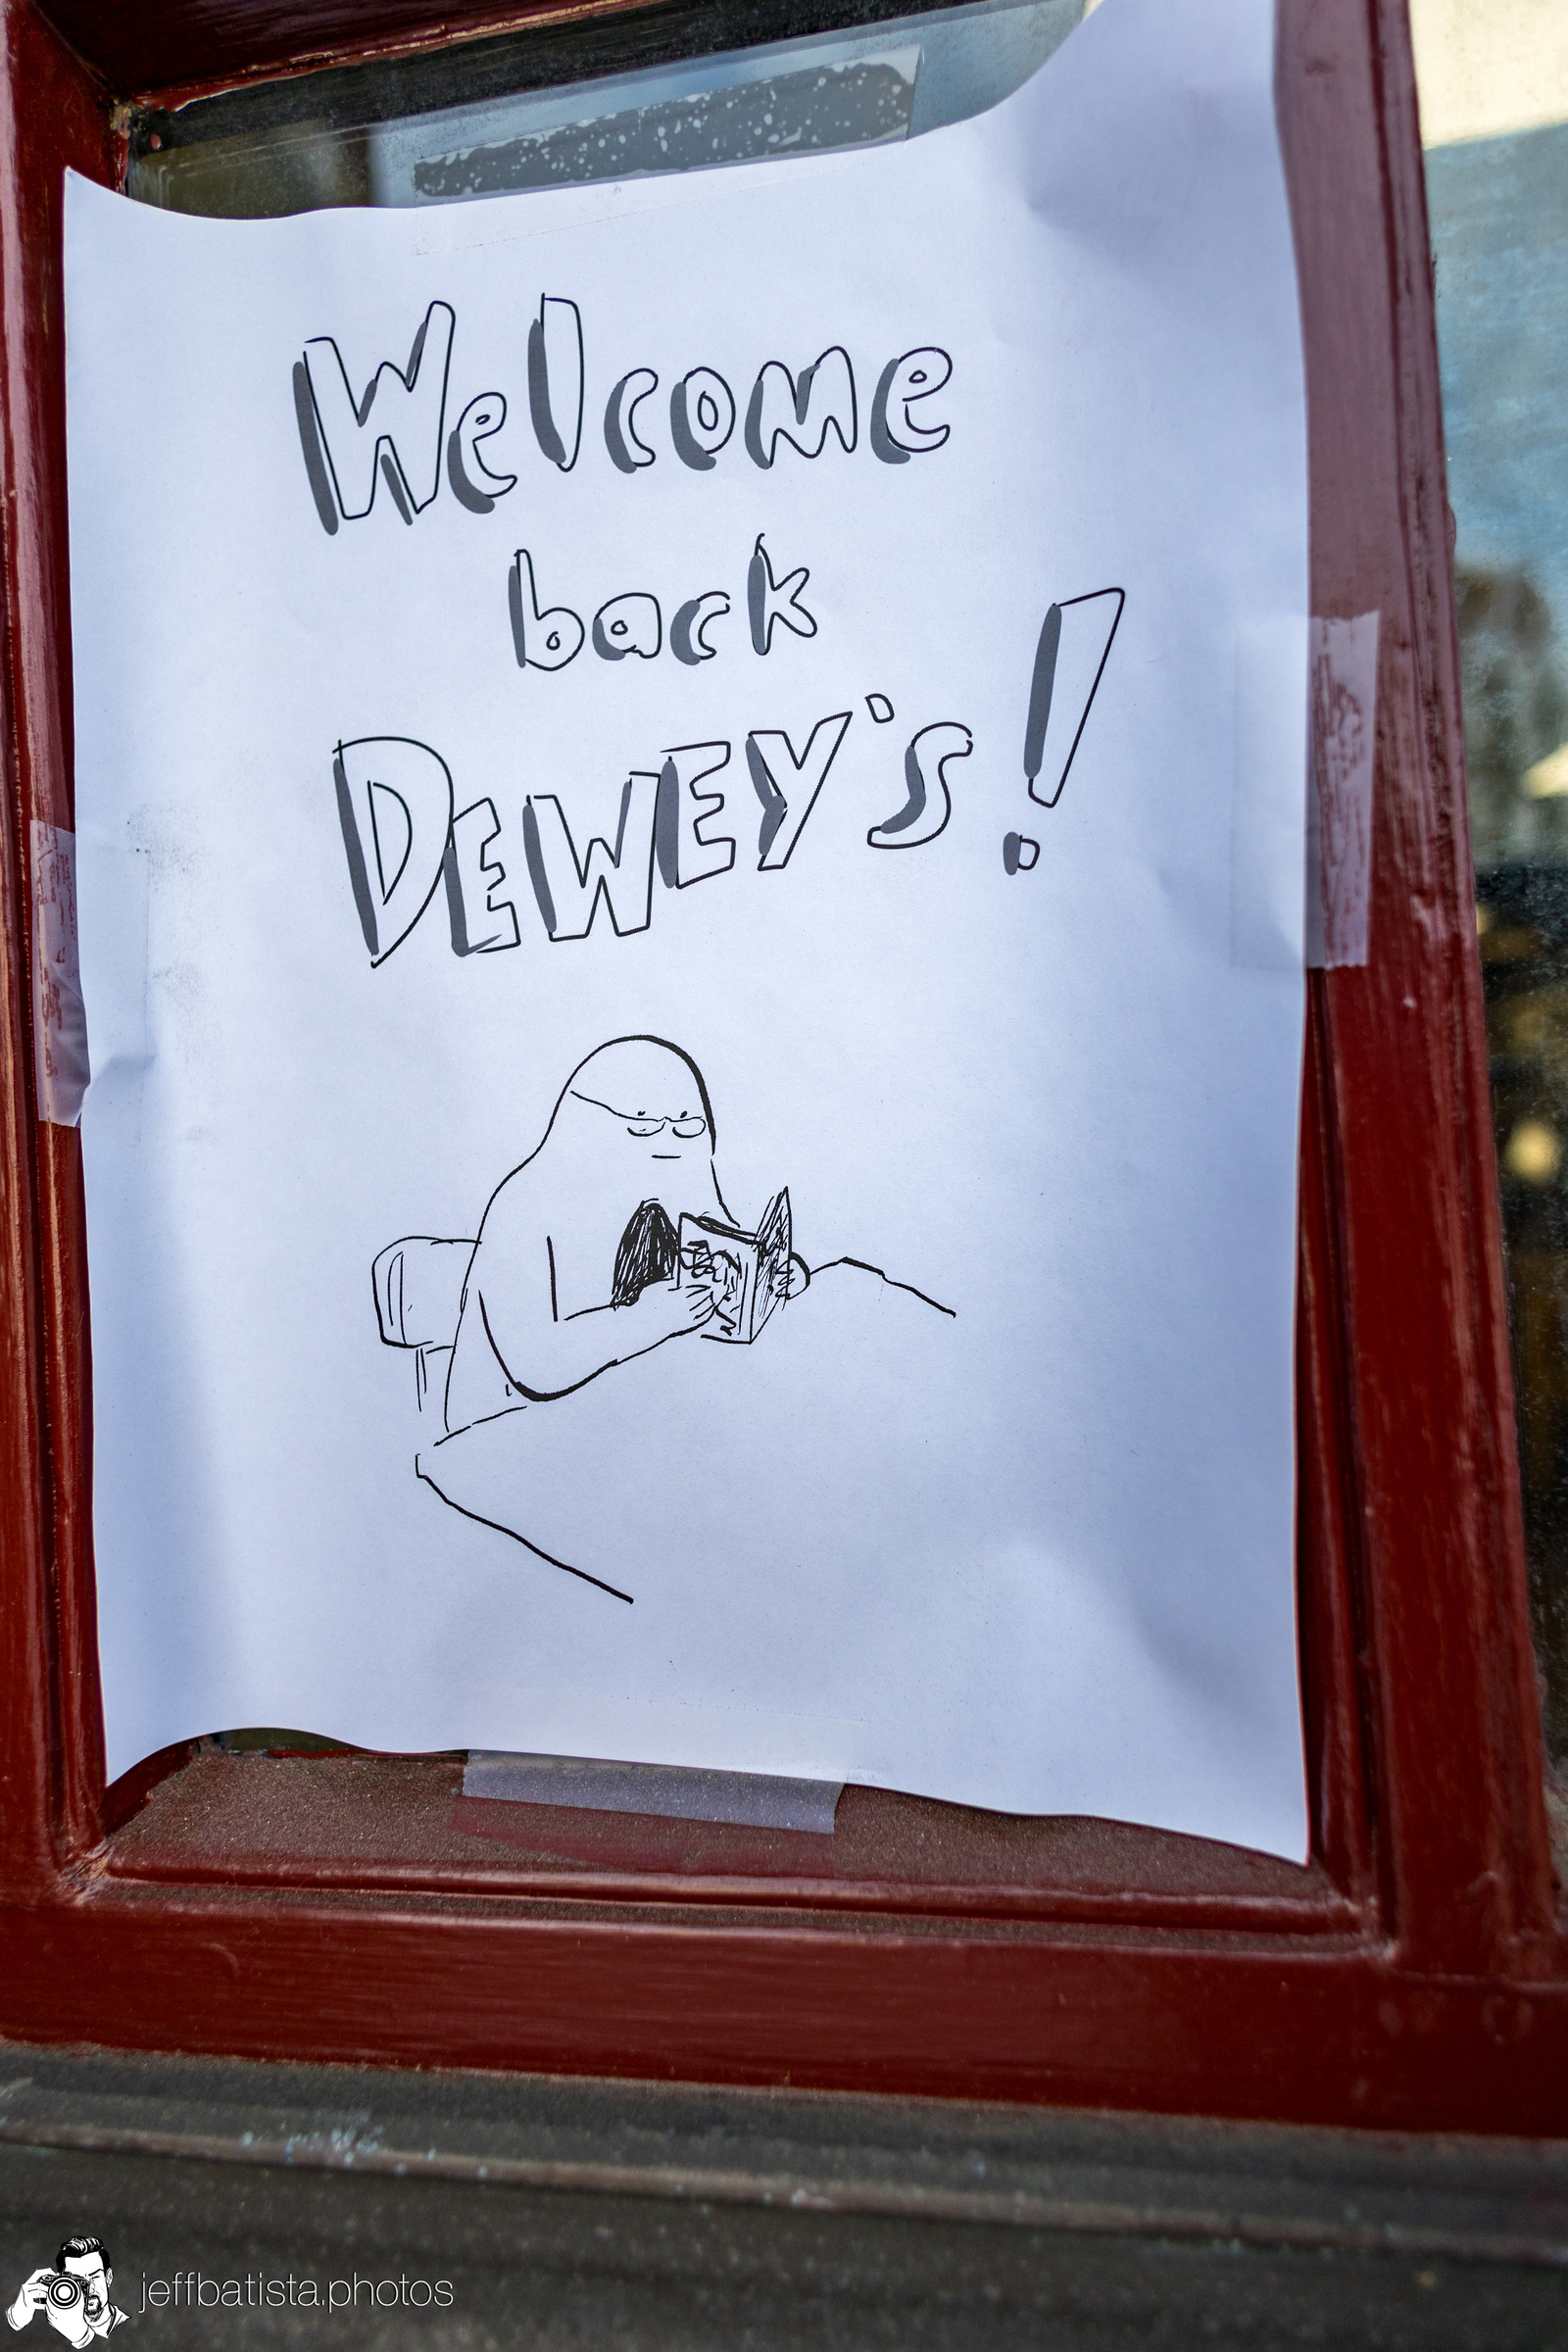 Welcome
back
DEWEY's!
jeffbatista.photos